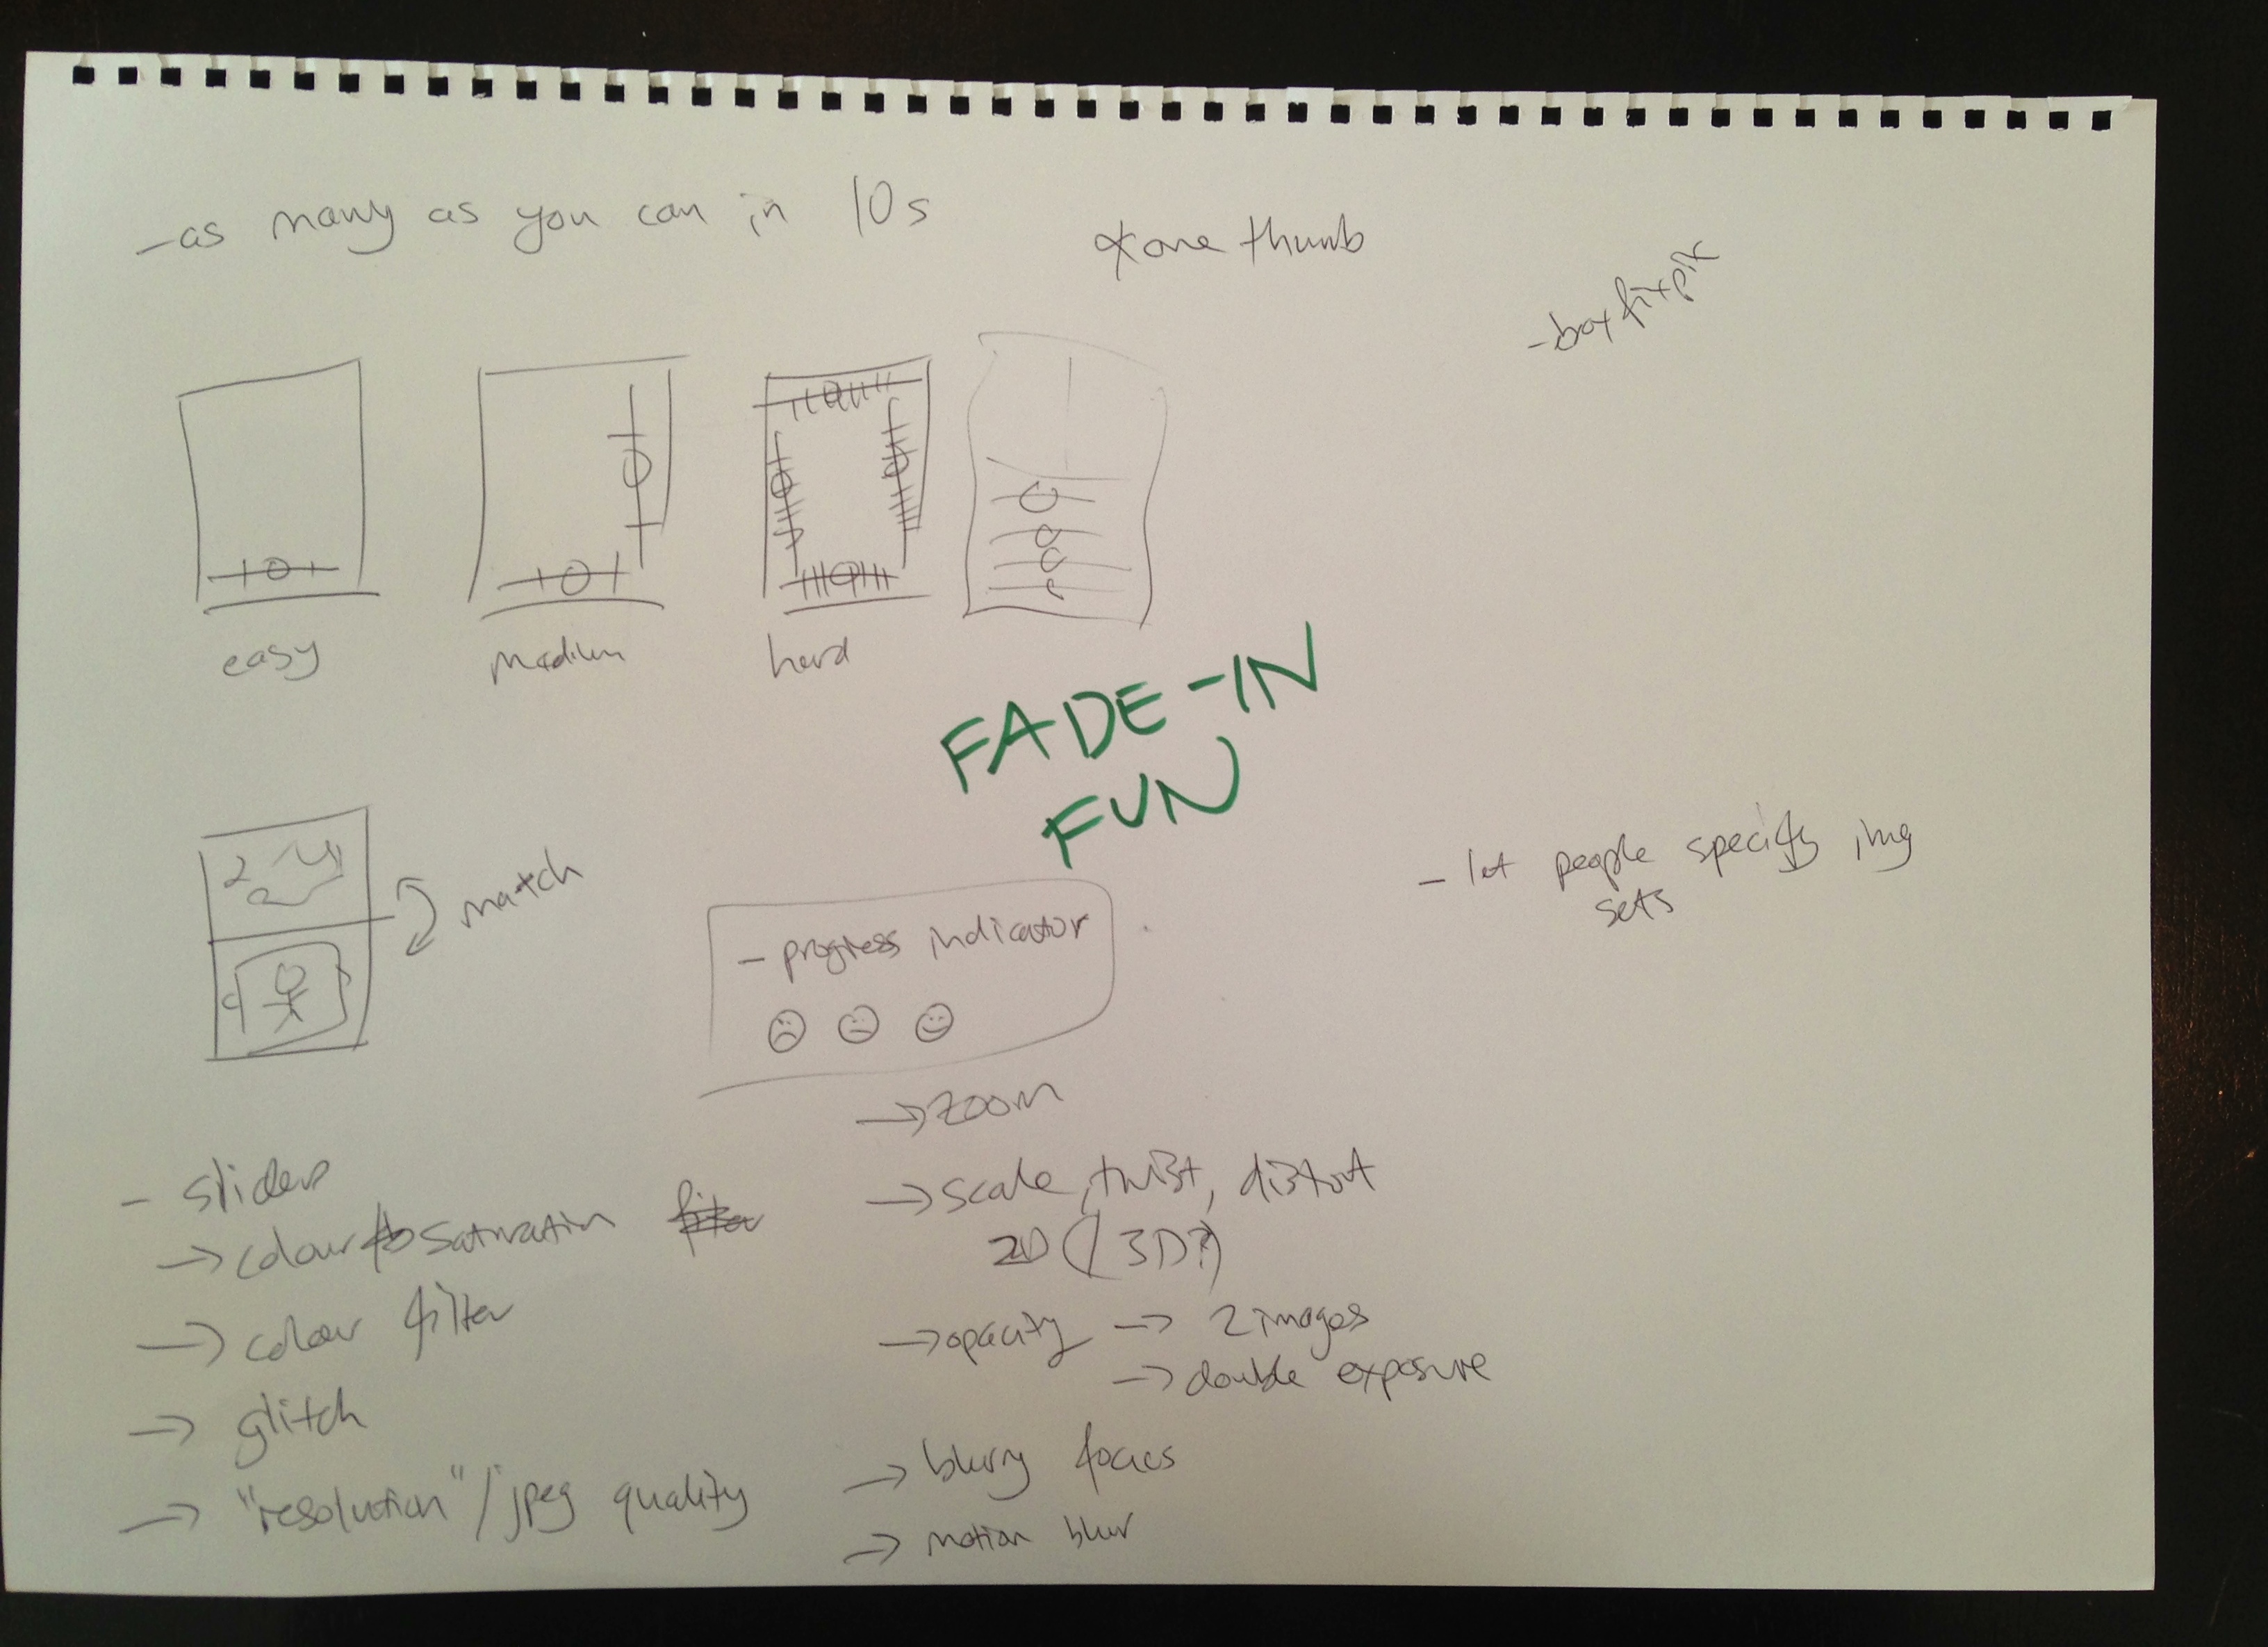 - as many as you can in 10s
* one thumb
- box fixpix
easy
medium
hard
FADE-IN
FUN
match
- let people specify img
sets
- progress indicator
- sliders
→ colour saturation
→ colour filter
→ glitch
→ "resolution"/jpeg quality
→ zoom
→ scale, twist, distort
2D (/3D?)
→ opacity → 2 images
→ double exposure
→ blurry focus
→ motion blur